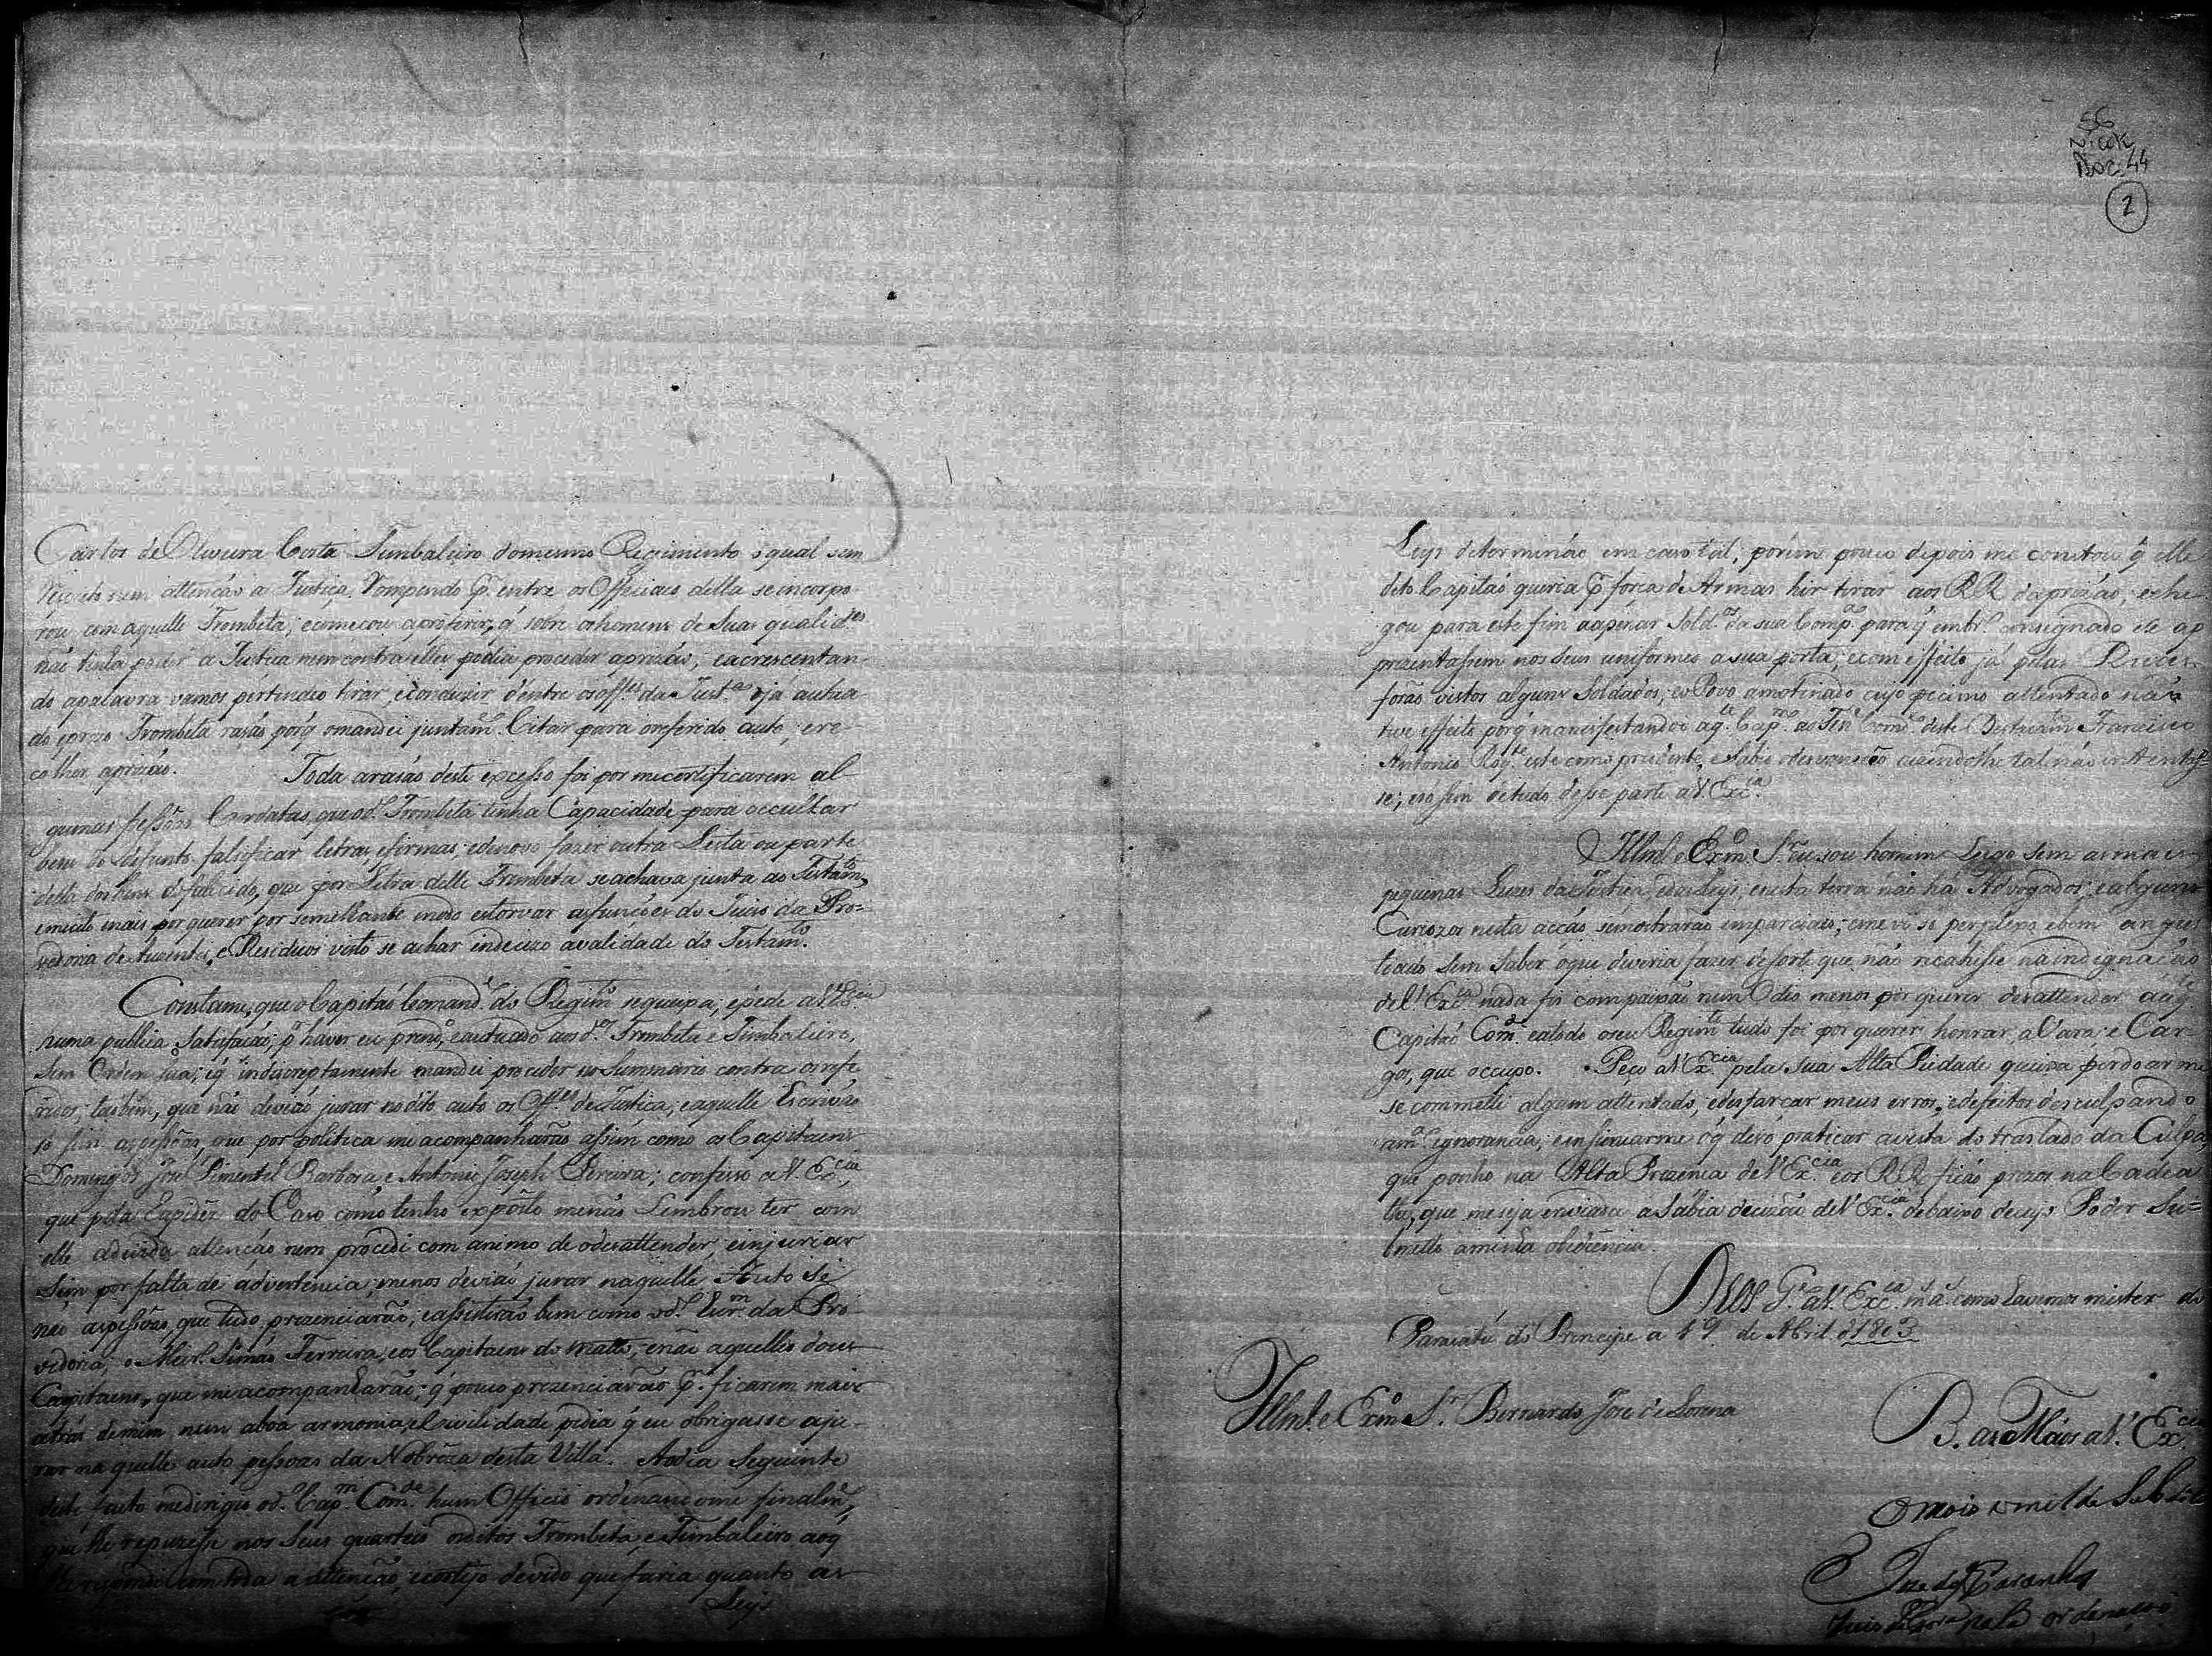 SG
Doc. 44
2
Carlos de Oliveira Costa Timbaleiro domesmo Regimento o qual sem
respeito nem attenção a Justiça, Rompendo p.r entre os Officiaes della se incorpo-
rou com aquelle Trombeta; ecomeçou aproferir, q̃ sobre os homens de Suas qualid.es
não tinha poder a Justiça nem contra elles podia proceder aprizão; eacrescentan-
do apalavra vamos pertendeo tirar, econduzir d'entre os off.es da Just.a o já autua-
do eprezo Trombeta razão porq̃ omandei juntam.e Citar para oreferido auto, ere-
colher aprizão. Toda arazão deste excesso foi por mecertificarem al-
gumas pessoas Cordatas, que od.o Trombeta tinha Capacidade para occultar
bens do defunto, falsificar letras, efirmas, edenovo fazer outra Lista ou parte
della dos bens do falecido, que por Letra delle Trombeta se achava junta ao Testam.to
emuito mais por querer por semelhante modo estorvar asfunçoes do Juizo da Pro=
vedoria de Auzentes, e Residuos visto se achar indecizo avalidade do Testam.to
Constame, que o Capitão Comand.e do Regim.to sequeixa, epede aV.Ex.cia
huma publica Satisfação, p.r haver eu prezo, eautuado aos d.os Trombeta e Timbaleiro,
Sem Ordem sua; eq̃ indiscreptamente mandei proceder no Summario contra os refe-
ridos; tãobem, que não deverão jurar nodito auto os Off.es deJustiça, eaquelle Escrivão
só sim aspessoas, que por politica me acompanharão assim como os Capitaens
Domingos José Pimentel Barboza, e Antonio Joseph Pereira; confesso a V. Ex.cia,
que pela Rapidez do Cazo como tenho exposto menão Lembrou ter com
elle adevida attenção nem procedi com animo de odesattender, einjuriar
Sim por falta de advertencia; menos devião jurar naquelle Auto se
não aspessoas, que tudo prezenciarão, eassistirão bem como od.o Escr.m da Pro-
vedoria, o Meir.o Simão Ferreira, eos Capitaens do matto, enão aquelles dous
Capitaens, que meacompanharão; q̃ pouco prezenciarão p.r ficarem mais
atrás demim nem aboa armonia, eCivilidade pedia q̃ eu obrigasse aju-
rar naquelle auto pessoas da Nobreza desta Villa. Aodia Seguinte
deste facto medirigio od.o Cap.m Com.de hum Officio ordenandome finalm.e,
que lhe repuzesse nos Seus quarteis osditos Trombeta, e Timbaleiro aoq̃
lhe respondi comtoda a attenção, ecortejo devido que faria quanto as
Leys
Leys determinão em cazo tal; porém pouco depois me constou q̃ elle
dito Capitão queria p.r força de Armas hir tirar aos RR. daprizão, eche-
gou para este fim aapenar Sold.os da sua Comp.a para q̃
prezentassem nos seus uniformes asua porta; ecom effeito já pelas Ruas
forão vistos alguns Soldados; eoPovo amotinado cujo pecimo attentado não
teve effeito porq̃ manifestandoo aq.le Cap.m ao Ten.e Com.e deste Destacam.to Francisco
Antonio Roq.e este como prudente, e Sabio odesvaneceo dizendolhe tal não intentas-
se; eso sim detudo desse parte aV. Ex.cia
Illm.o e Exm.o S.r Eu sou homem Leigo sem as mais
pequenas Luzes da Justiça, edas Leys, enesta terra não há Advogados; ealguns
Curiozos nesta acção semostrarão imparciaes; eme vi só perplexo, ebem angus-
tiado sem saber oque deveria fazer desorte que não recahisse naindignação
deV. Ex.cia nada foi compaixão nem Odio menos por querer desattender áaq.le
Capitão Com.de eatodo oseu Regim.to tudo foi por querer honrar aVara, e Car-
gos, que occupo. Peço aV.Ex.cia pela sua Alta Piedade queira perdoarme
se commetti algum attentado, edesfarçar meus erros, edefeitos desculpando
am.a ignorancia, einsinuarme oq̃ devo praticar avista do traslado da Culpa,
que ponho na Alta Prezença deV.Ex.cia eos RR. ficão prezos naCadea
thé, que meseja enviada aSábia decizão deV.Ex.cia debaixo decujo Poder Su=
bmetto aminha obediencia.
Deos G.e aV. Ex.cia m.s a.s como havemos mister de
Paracatú do Principe a 19 de Abril d'1803
Illm.o e Exm.o S.r Bernardo José de Lorena
B. as Mãos aV. Ex.cia
O mais umilde Subdito